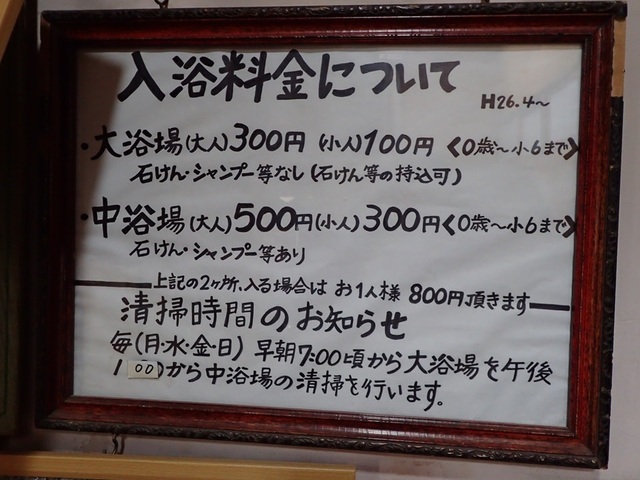 入浴料金について
H26.4〜
・大浴場(大人)300円 (小人)100円 《0歳〜小6まで》
石けん・シャンプー等なし(石けん等の持込可)
・中浴場(大人)500円(小人)300円《0歳〜小6まで》
石けん・シャンプー等あり
上記の2ヶ所、入る場合は お1人様 800円頂きます
清掃時間のお知らせ
毎(月・水・金・日) 早朝7:00頃から大浴場を午後
1 00から中浴場の清掃を行います。